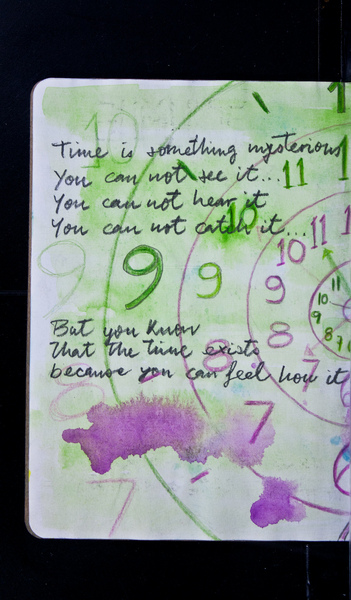 Time is something mysterious
You can not see it...
You can not hear it
You can not catch it...
But you know
that the time exists
because you can feel how it
1
11
10
11
10
9
9
9
9
8
8
7
7
7
8
11
10
9
8
7